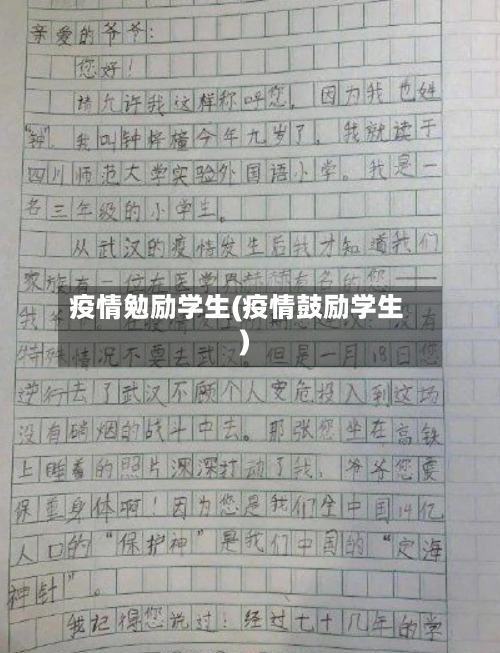 亲爱的爷爷：
您好！
请允许我这样称呼您，因为我也姓
“钟”。我叫钟梓橦今年九岁了，我就读于
四川师范大学实验外国语小学。我是一
名三年级的小学生。
从武汉的疫情发生后我才知道我们
家族有一位在医学界赫赫有名的您——
疫情勉励学生(疫情鼓励学生
)
特殊情况不要去武汉。但是一月18日您
逆行去了武汉不顾个人安危投入到这场
没有硝烟的战斗中去。那张您坐在高铁
上睡着的照片深深打动了我，爷爷您要
保重身体啊！因为您是我们全中国14亿
人口的“保护神”是我们中国的“定海
神针”。
我记得您说过：经过七十几年的学